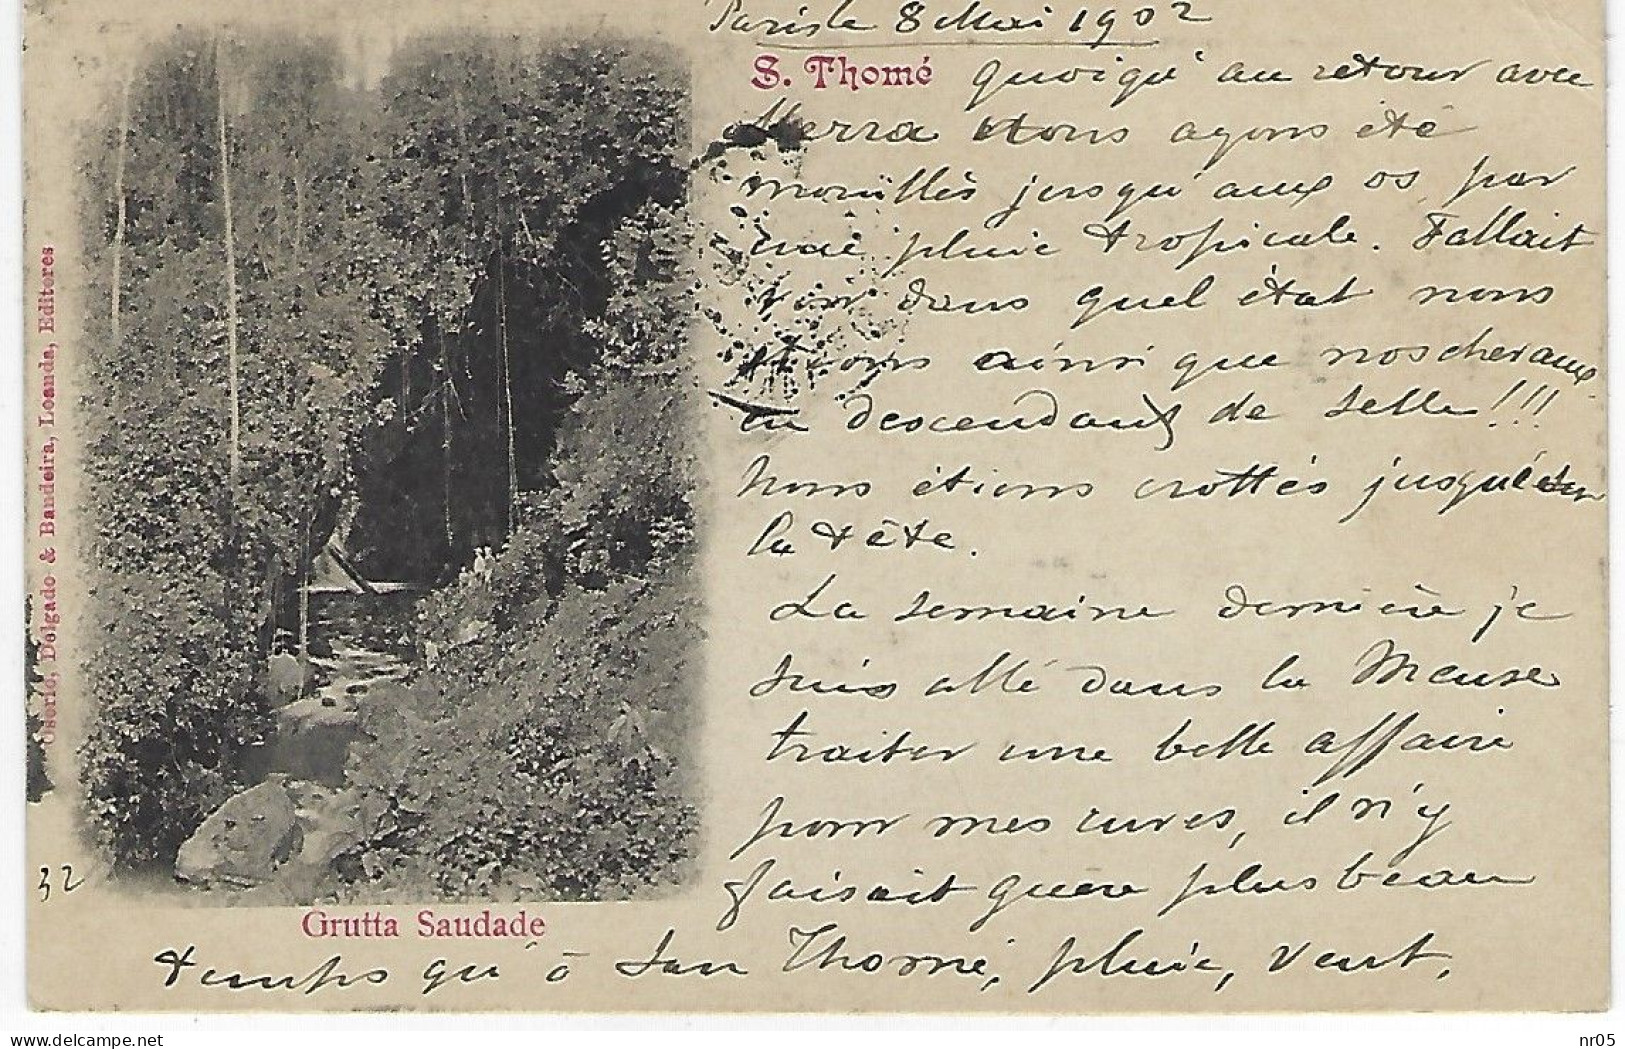 Paris le 8 Mai 1902
S. Thomé
quoiqu'au retour avec
Merra nous ayons été
mouillés jusqu'aux os, par
une pluie tropicale. Fallait
voir dans quel état nous
étions ainsi que nos chevaux
en descendant de selle!!!
Nous étions crottés jusque sur
la tête.
La semaine dernière je
suis allé dans la Meuse
traiter une belle affaire
pour mes cuves, il n'y
faisait guère plus beau
temps qu'à San Thomé, pluie, vent,
Grutta Saudade
Osorio, Delgado & Bandeira, Loanda, Editores
32
delcampe.net
nr05